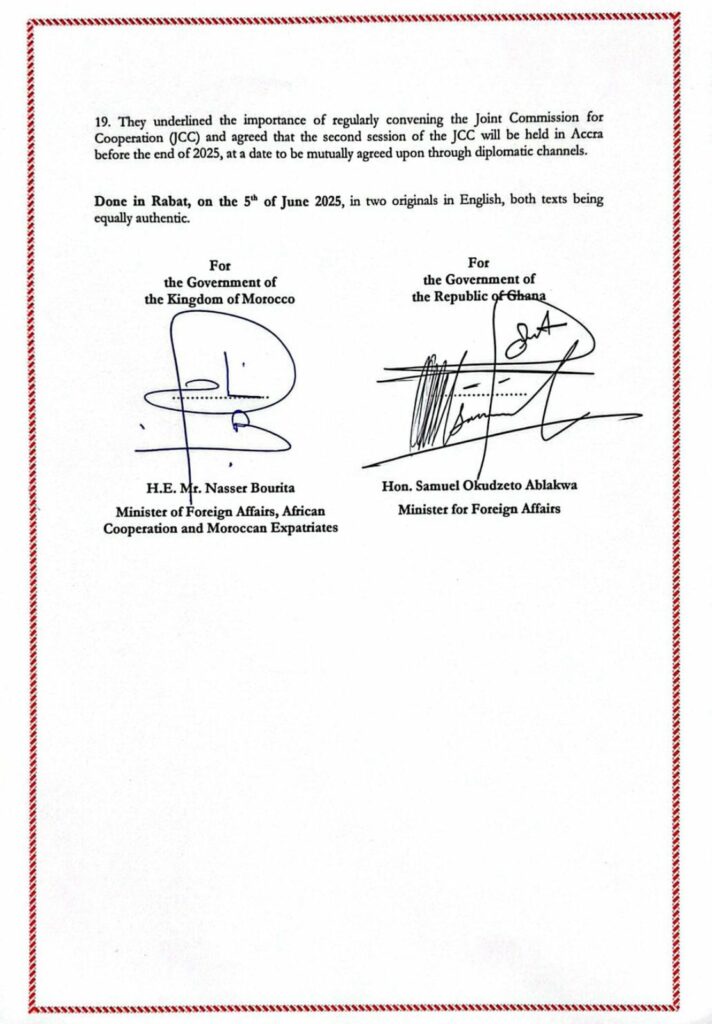 19. They underlined the importance of regularly convening the Joint Commission for
Cooperation (JCC) and agreed that the second session of the JCC will be held in Accra
before the end of 2025, at a date to be mutually agreed upon through diplomatic channels.
Done in Rabat, on the 5th of June 2025, in two originals in English, both texts being
equally authentic.
For
the Government of
the Kingdom of Morocco
H.E. Mr. Nasser Bourita
Minister of Foreign Affairs, African
Cooperation and Moroccan Expatriates
For
the Government of
the Republic of Ghana
Hon. Samuel Okudzeto Ablakwa
Minister for Foreign Affairs